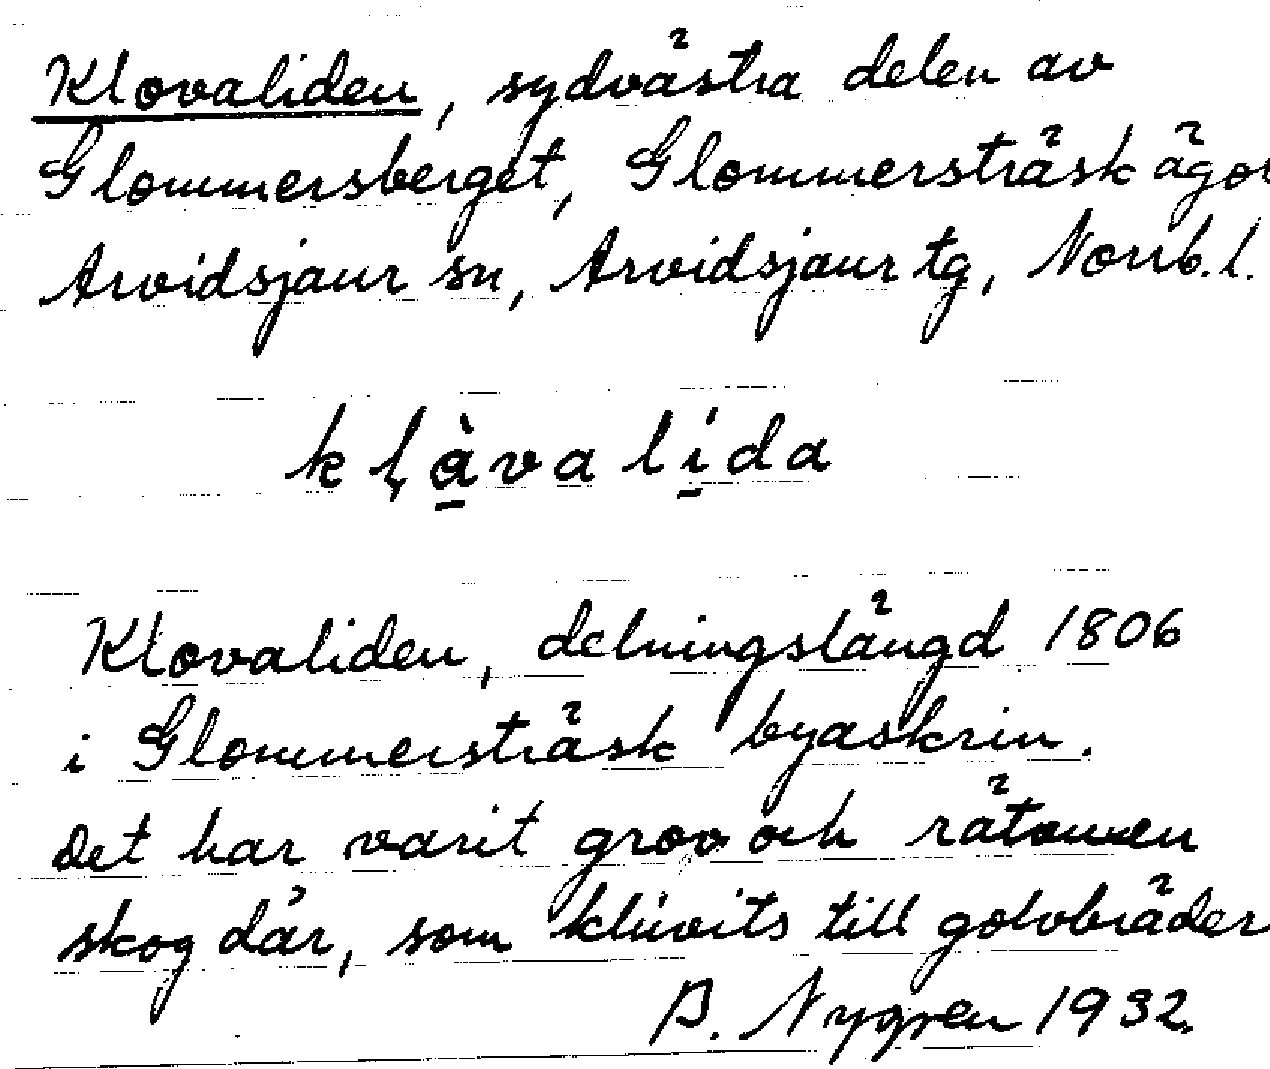 Klovaliden, sydvästra delen av
Glommersberget, Glommersträsk ägor
Arvidsjaur sn, Arvidsjaur tg, Norrb. l.
kḷàva lída
Klovaliden, delningslängd 1806
i Glommersträsk byaskrin.
Det har varit grov och rätvuxen
skog där, som kluvits till golvbräder
B. Nygren 1932.